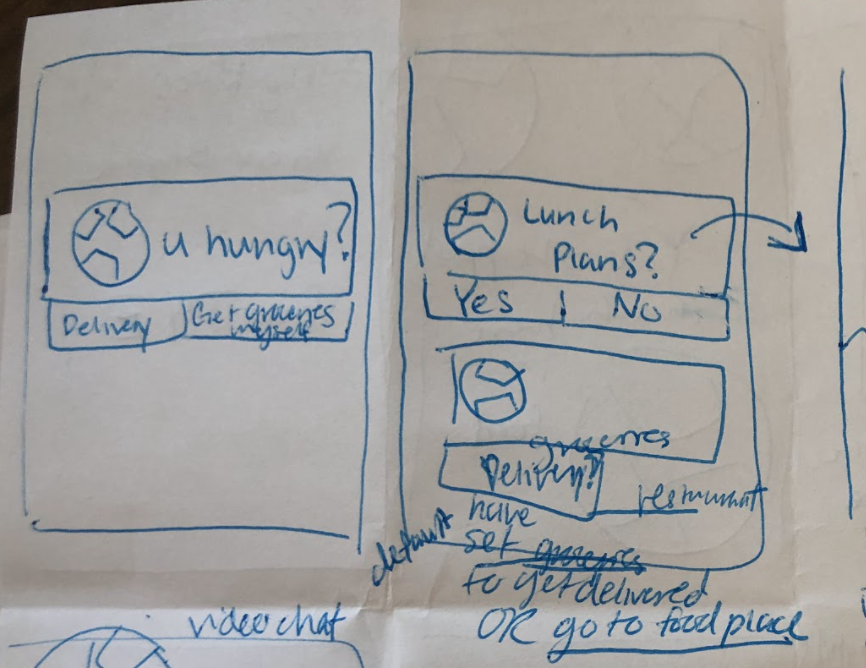 u hungry?
Delivery
Get groceries
myself
Lunch
Plans?
Yes
No
groceries
Delivery?
restaurant
default
have
set groceries
to get delivered
OR go to food place
video chat